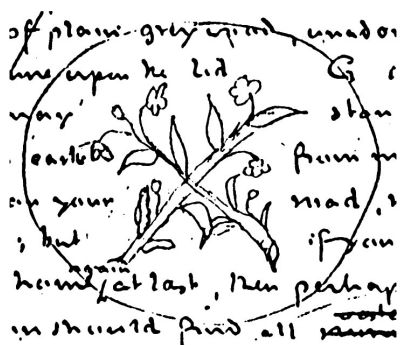 of plain grey wood, unado
une upon the lid G
may stan
earth from m
on your road,
; but if you
home again at last, then perhap
should find all